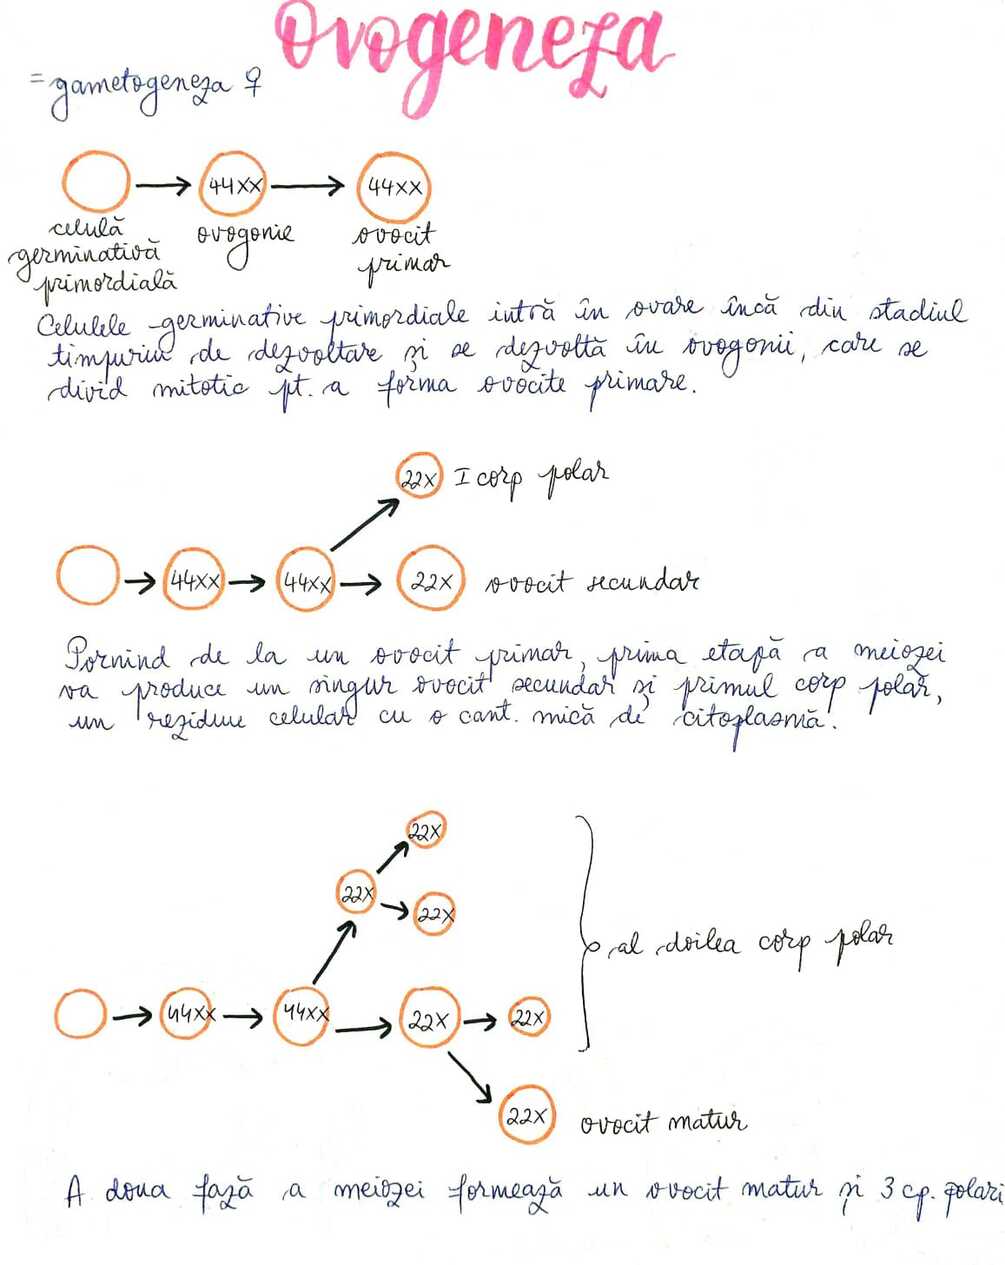 Ovogeneza
= gametogeneza ♀
44XX
44XX
celulă
germinativă
primordială
ovogonie
ovocit
primar
Celulele germinative primordiale intră în ovare încă din stadiul
timpuriu de dezvoltare și se dezvoltă în ovogonii, care se
divid mitotic pt. a forma ovocite primare.
22X I corp polar
44XX
44XX
22X
ovocit secundar
Pornind de la un ovocit primar, prima etapă a meiozei
va produce un singur ovocit secundar și primul corp polar,
un reziduu celular cu o cant. mică de citoplasmă.
22X
22X
22X
al doilea corp polar
44XX
44XX
22X
22X
22X
ovocit matur
A doua fază a meiozei formează un ovocit matur și 3 cp. polari